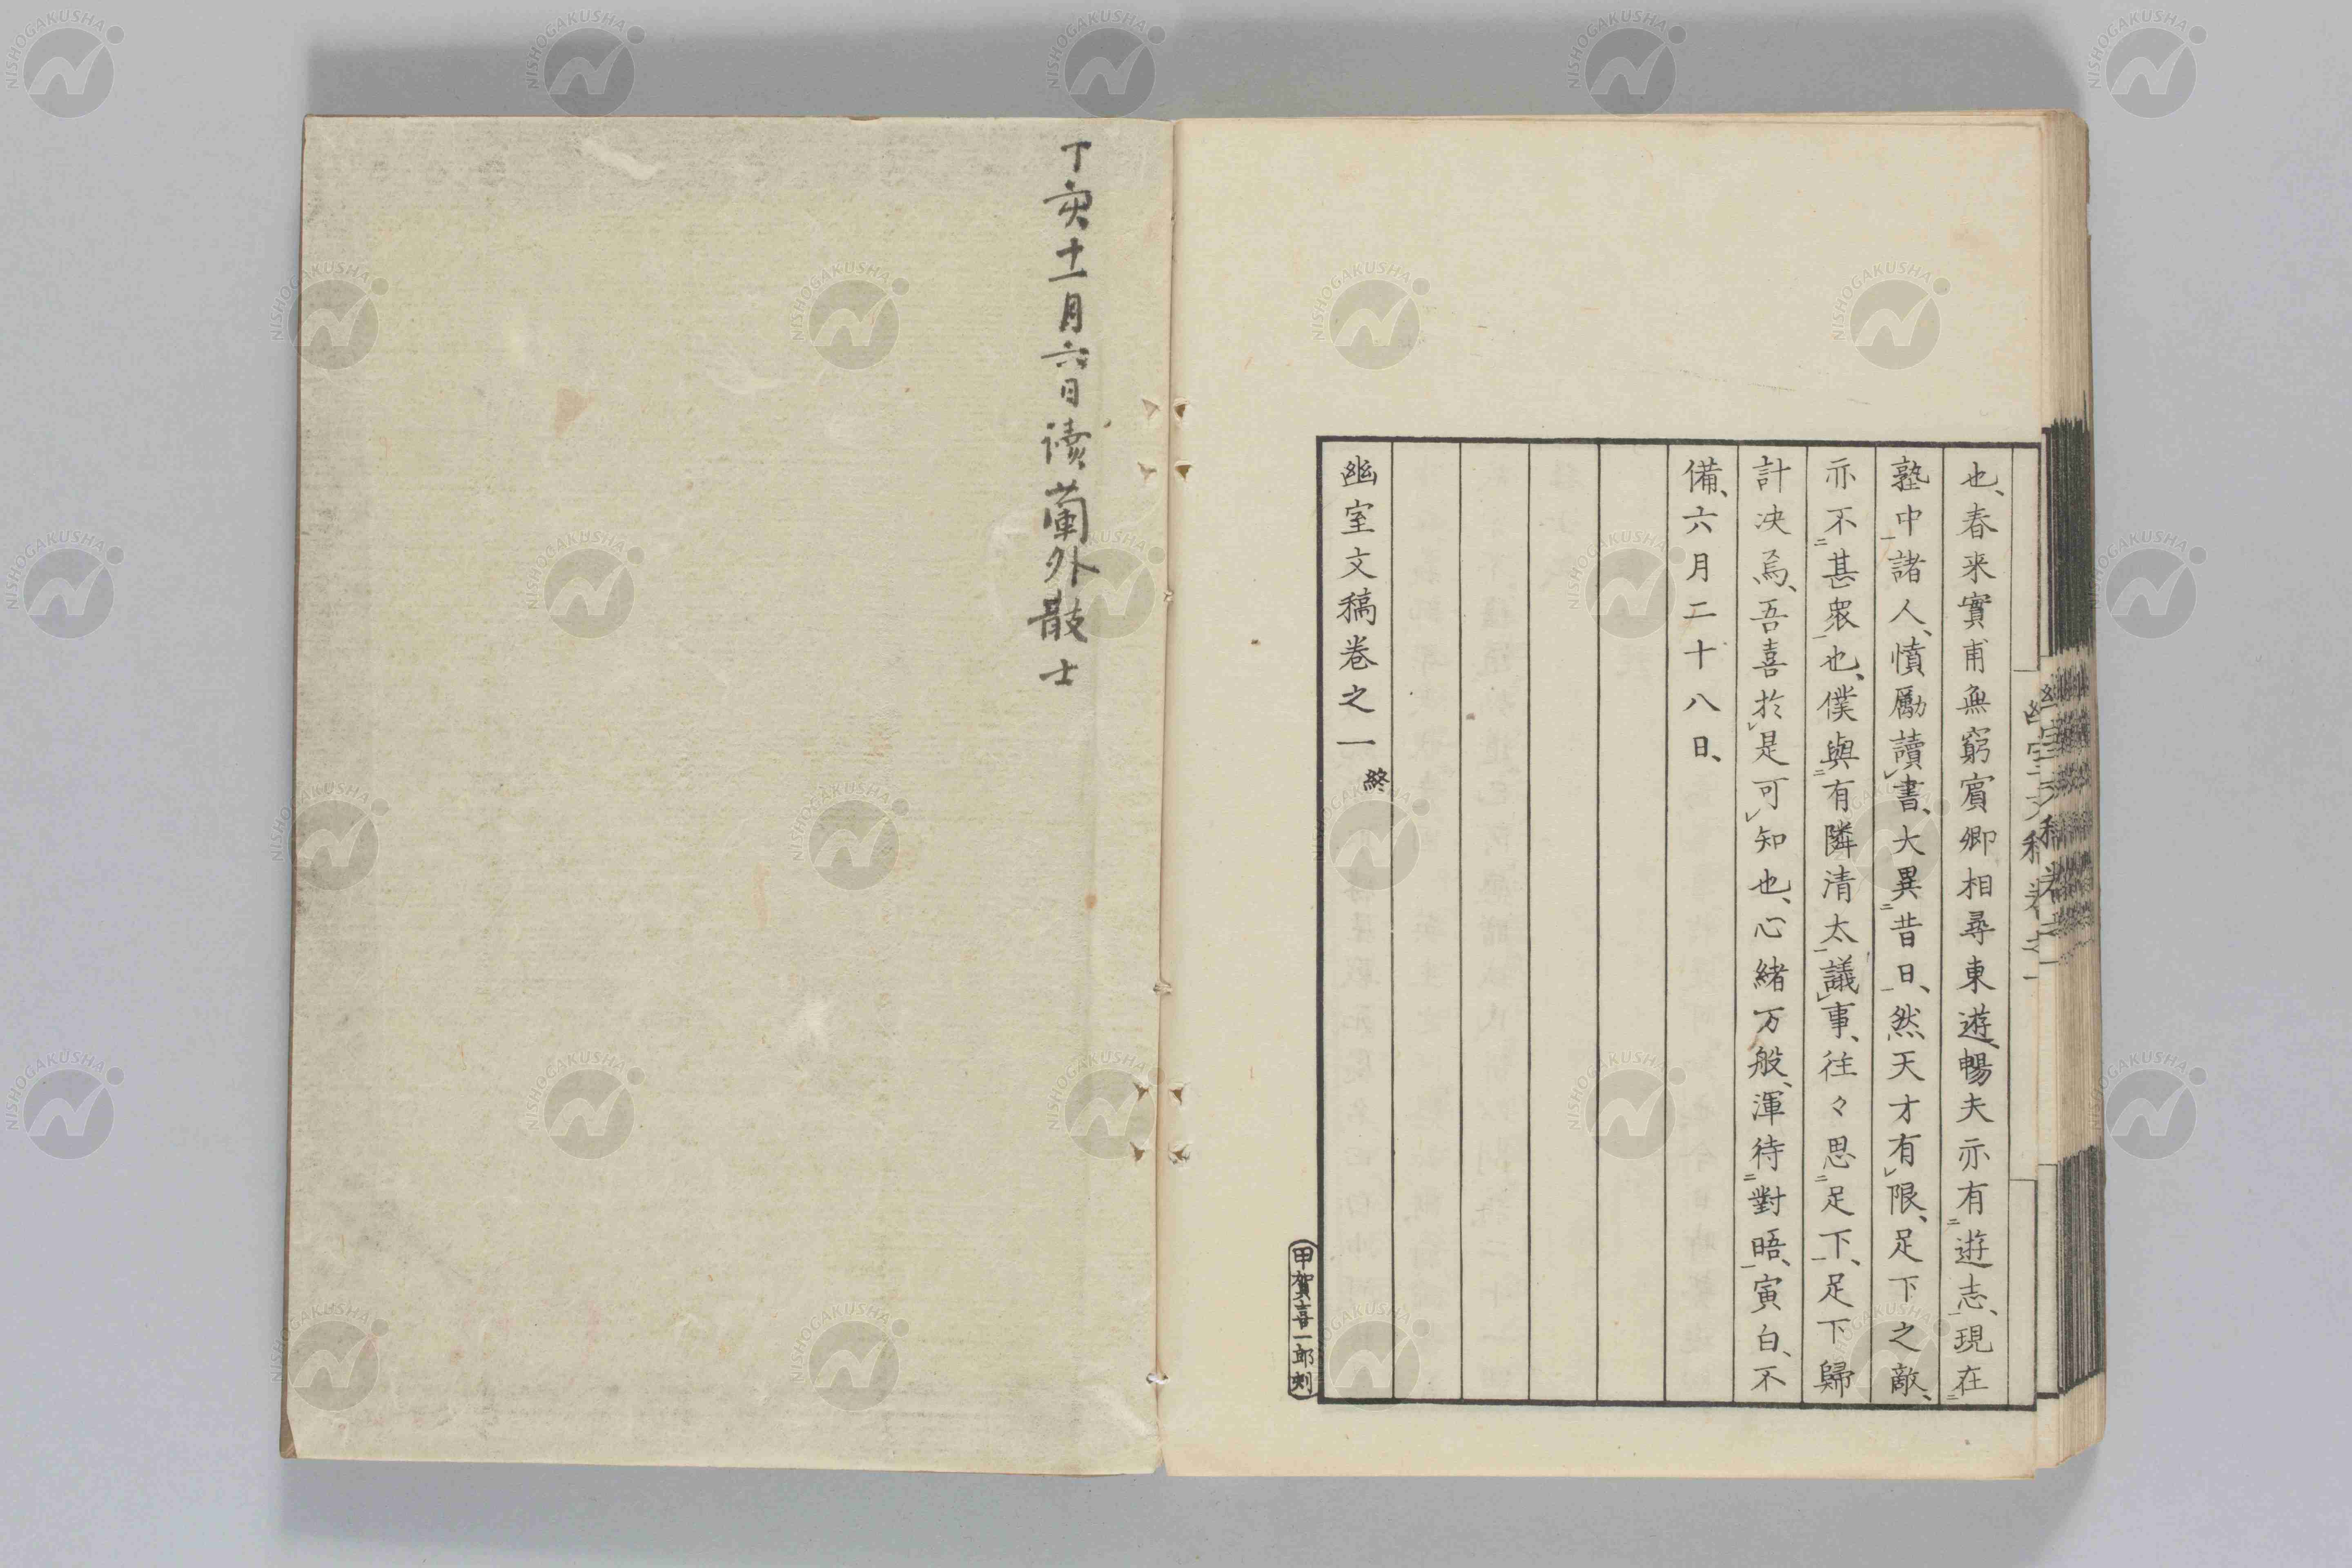 也、春来實甫無窮賓卿相尋東遊、暢夫亦有遊志、現在
塾中諸人、憤勵讀書、大異昔日、然天才有限、足下之敵、
亦不甚衆也、僕與有隣清太議事、往々思足下、足下歸
計决焉、吾喜於是可知也、心緒万般、渾待對晤、寅白、不
備、六月二十八日、
幽室文稿卷之一 終
甲賀喜一郎刻
丁亥十一月六日读蘭外散士
幽室文稿卷之一
NISHOGAKUSHA